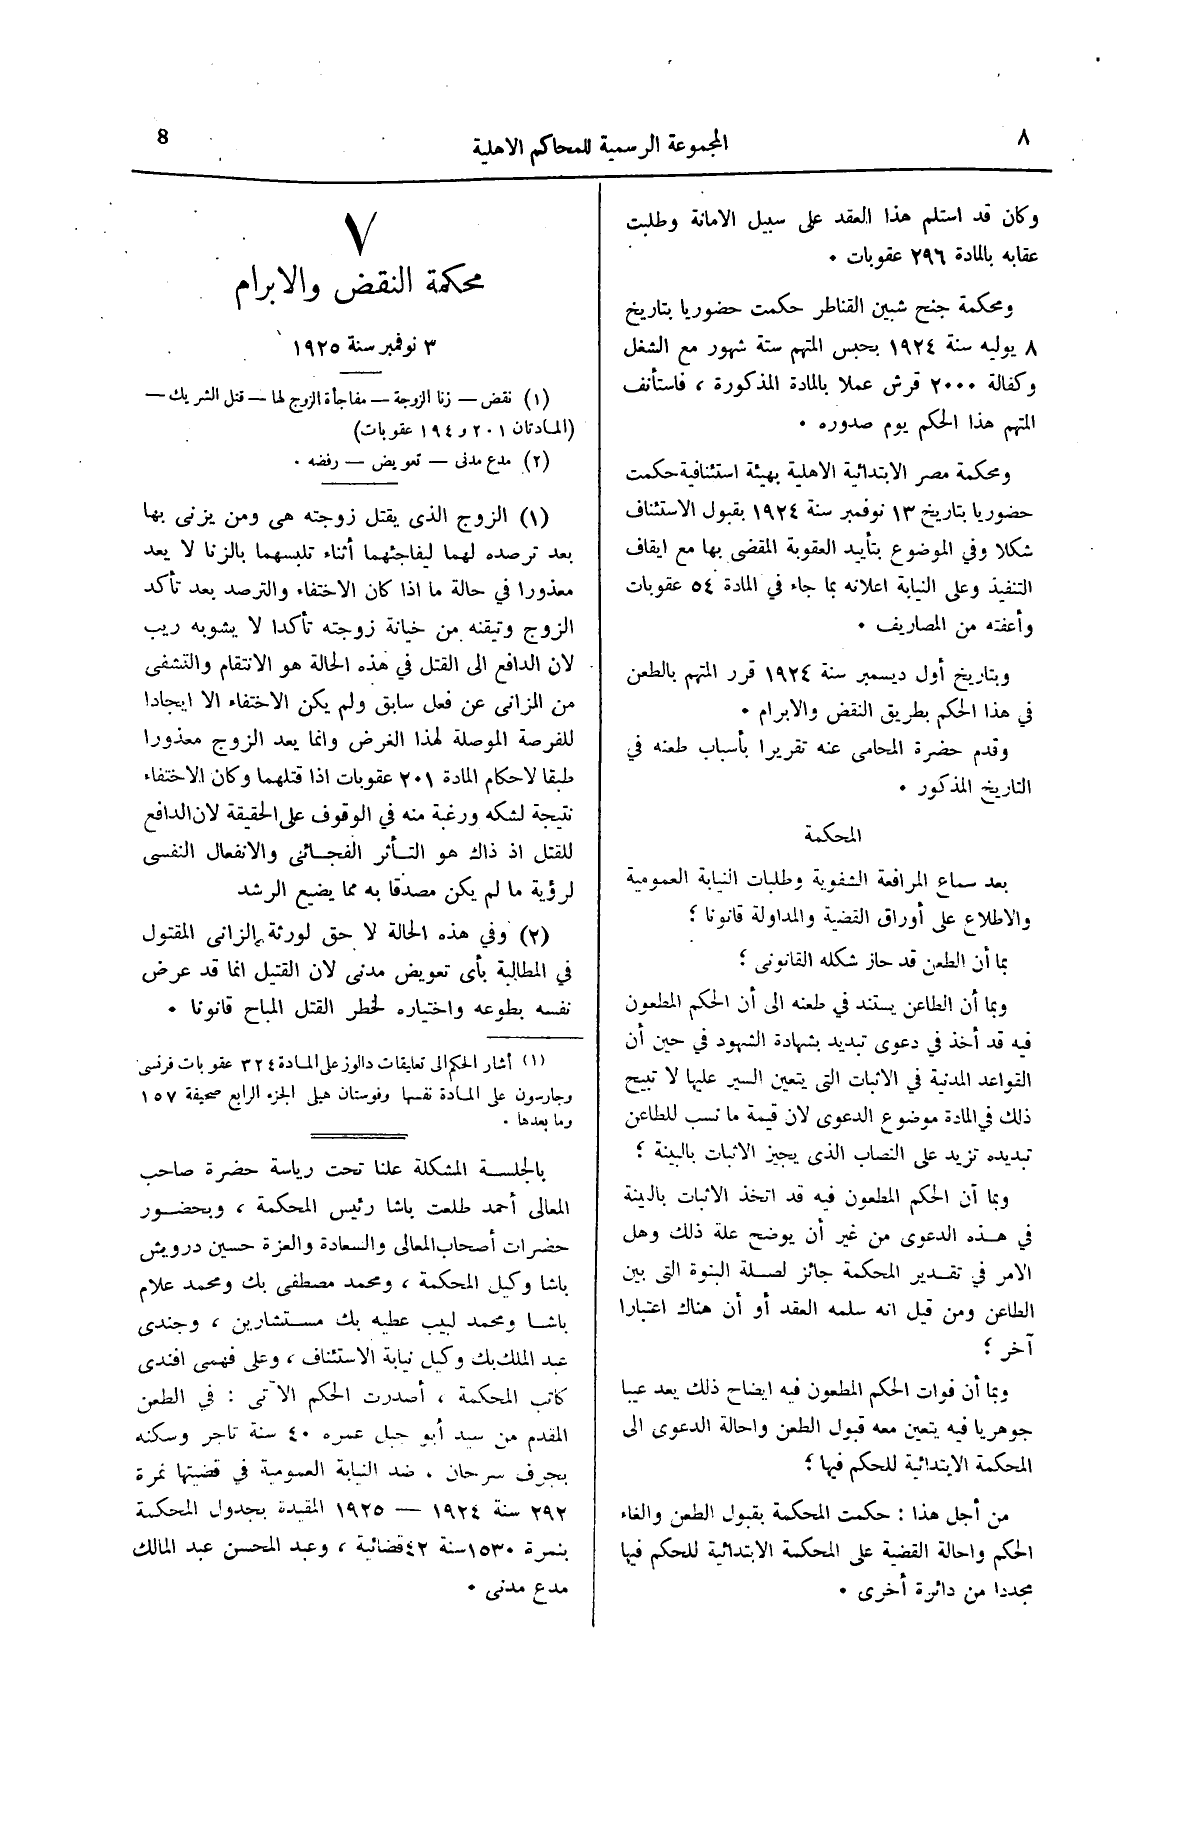 ٨
المجموعة الرسمية للمحاكم الاهلية
8
وكان قد استلم هذا العقد على سبيل الامانة وطلبت
عقابه بالمادة ٢٩٦ عقوبات ٠
ومحكمة جنح شبين القناطر حكمت حضوريا بتاريخ
٨ يوليه سنة ١٩٢٤ بحبس المتهم ستة شهور مع الشغل
وكفالة ٢٠٠٠ قرش عملا بالمادة المذكورة ، فاستأنف
المتهم هذا الحكم يوم صدوره ٠
ومحكمة مصر الابتدائية الاهلية بهيئة استئنافية حكمت
حضوريا بتاريخ ١٣ نوفمبر سنة ١٩٢٤ بقبول الاستئناف
شكلا وفي الموضوع بتأييد العقوبة المقضى بها مع ايقاف
التنفيذ وعلى النيابة اعلانه بما جاء في المادة ٥٤ عقوبات
وأعفته من المصاريف ٠
وبتاريخ أول ديسمبر سنة ١٩٢٤ قرر المتهم بالطعن
في هذا الحكم بطريق النقض والابرام ٠
وقدم حضرة المحامى عنه تقريرا بأسباب طعنه في
التاريخ المذكور ٠
المحكمة
بعد سماع المرافعة الشفوية وطلبات النيابة العمومية
والاطلاع على أوراق القضية والمداولة قانونا ؛
بما أن الطعن قد حاز شكله القانونى ؛
وبما أن الطاعن يستند في طعنه الى أن الحكم المطعون
فيه قد أخذ في دعوى تبديد بشهادة الشهود في حين أن
القواعد المدنية في الاثبات التى يتعين السير عليها لا تبيح
ذلك في المادة موضوع الدعوى لان قيمة ما نسب للطاعن
تبديده تزيد على النصاب الذى يجيز الاثبات بالبينة ؛
وبما أن الحكم المطعون فيه قد اتخذ الاثبات بالبينة
في هذه الدعوى من غير أن يوضح علة ذلك وهل
الامر في تقدير المحكمة جائز لصلة البنوة التى بين
الطاعن ومن قيل انه سلمه العقد أو أن هناك اعتبارا
آخر ؛
وبما أن فوات الحكم المطعون فيه ايضاح ذلك يعد عيبا
جوهريا فيه يتعين معه قبول الطعن واحالة الدعوى الى
المحكمة الابتدائية للحكم فيها ؛
من أجل هذا : حكمت المحكمة بقبول الطعن والغاء
الحكم واحالة القضية على المحكمة الابتدائية للحكم فيها
مجددا من دائرة أخرى ٠
٧
محكمة النقض والابرام
٣ نوفمبر سنة ١٩٢٥
(١) نقض — زنا الزوجة — مفاجأة الزوج لها — قتل الشريك —
(المادتان ٢٠١ و ١٩٤ عقوبات)
(٢) مدع مدنى — تعويض — رفضه ٠
(١) الزوج الذى يقتل زوجته هى ومن يزنى بها
بعد ترصده لهما ليفاجئهما أثناء تلبسهما بالزنا لا يعد
معذورا في حالة ما اذا كان الاختفاء والترصد بعد تأكد
الزوج وتيقنه من خيانة زوجته تأكدا لا يشوبه ريب
لان الدافع الى القتل في هذه الحالة هو الانتقام والتشفى
من الزانى عن فعل سابق ولم يكن الاختفاء الا ايجادا
للفرصة الموصلة لهذا الغرض وانما يعد الزوج معذورا
طبقا لاحكام المادة ٢٠١ عقوبات اذا قتلهما وكان الاختفاء
نتيجة لشكه ورغبة منه في الوقوف على الحقيقة لان الدافع
للقتل اذ ذاك هو التأثر الفجائى والانفعال النفسى
لرؤية ما لم يكن مصدقا به مما يضيع الرشد
(٢) وفي هذه الحالة لا حق لورثة الزانى المقتول
في المطالبة بأى تعويض مدنى لان القتيل انما قد عرض
نفسه بطوعه واختياره لخطر القتل المباح قانونا ٠
(١) أشار الحكم الى تعليقات دالوز على المادة ٣٢٤ عقوبات فرنسى
وجارسون على المادة نفسها وفوستان هيلى الجزء الرابع صحيفة ١٥٧
وما بعدها ٠
بالجلسة المشكلة علنا تحت رياسة حضرة صاحب
المعالى أحمد طلعت باشا رئيس المحكمة ، وبحضور
حضرات أصحاب المعالى والسعادة والعزة حسين درويش
باشا وكيل المحكمة ، ومحمد مصطفى بك ومحمد علام
باشا ومحمد لبيب عطيه بك مستشارين ، وجندى
عبد الملك بك وكيل نيابة الاستئناف ، وعلى فهمى افندى
كاتب المحكمة ، أصدرت الحكم الآتى : في الطعن
المقدم من سيد أبو جبل عمره ٤٠ سنة تاجر وسكنه
بجرف سرحان ٠ ضد النيابة العمومية في قضيتها نمرة
٢٩٢ سنة ١٩٢٤ — ١٩٢٥ المقيدة بجدول المحكمة
بنمرة ١٥٣٠ سنة ٤٢ قضائية ، وعبد المحسن عبد المالك
مدع مدنى ٠